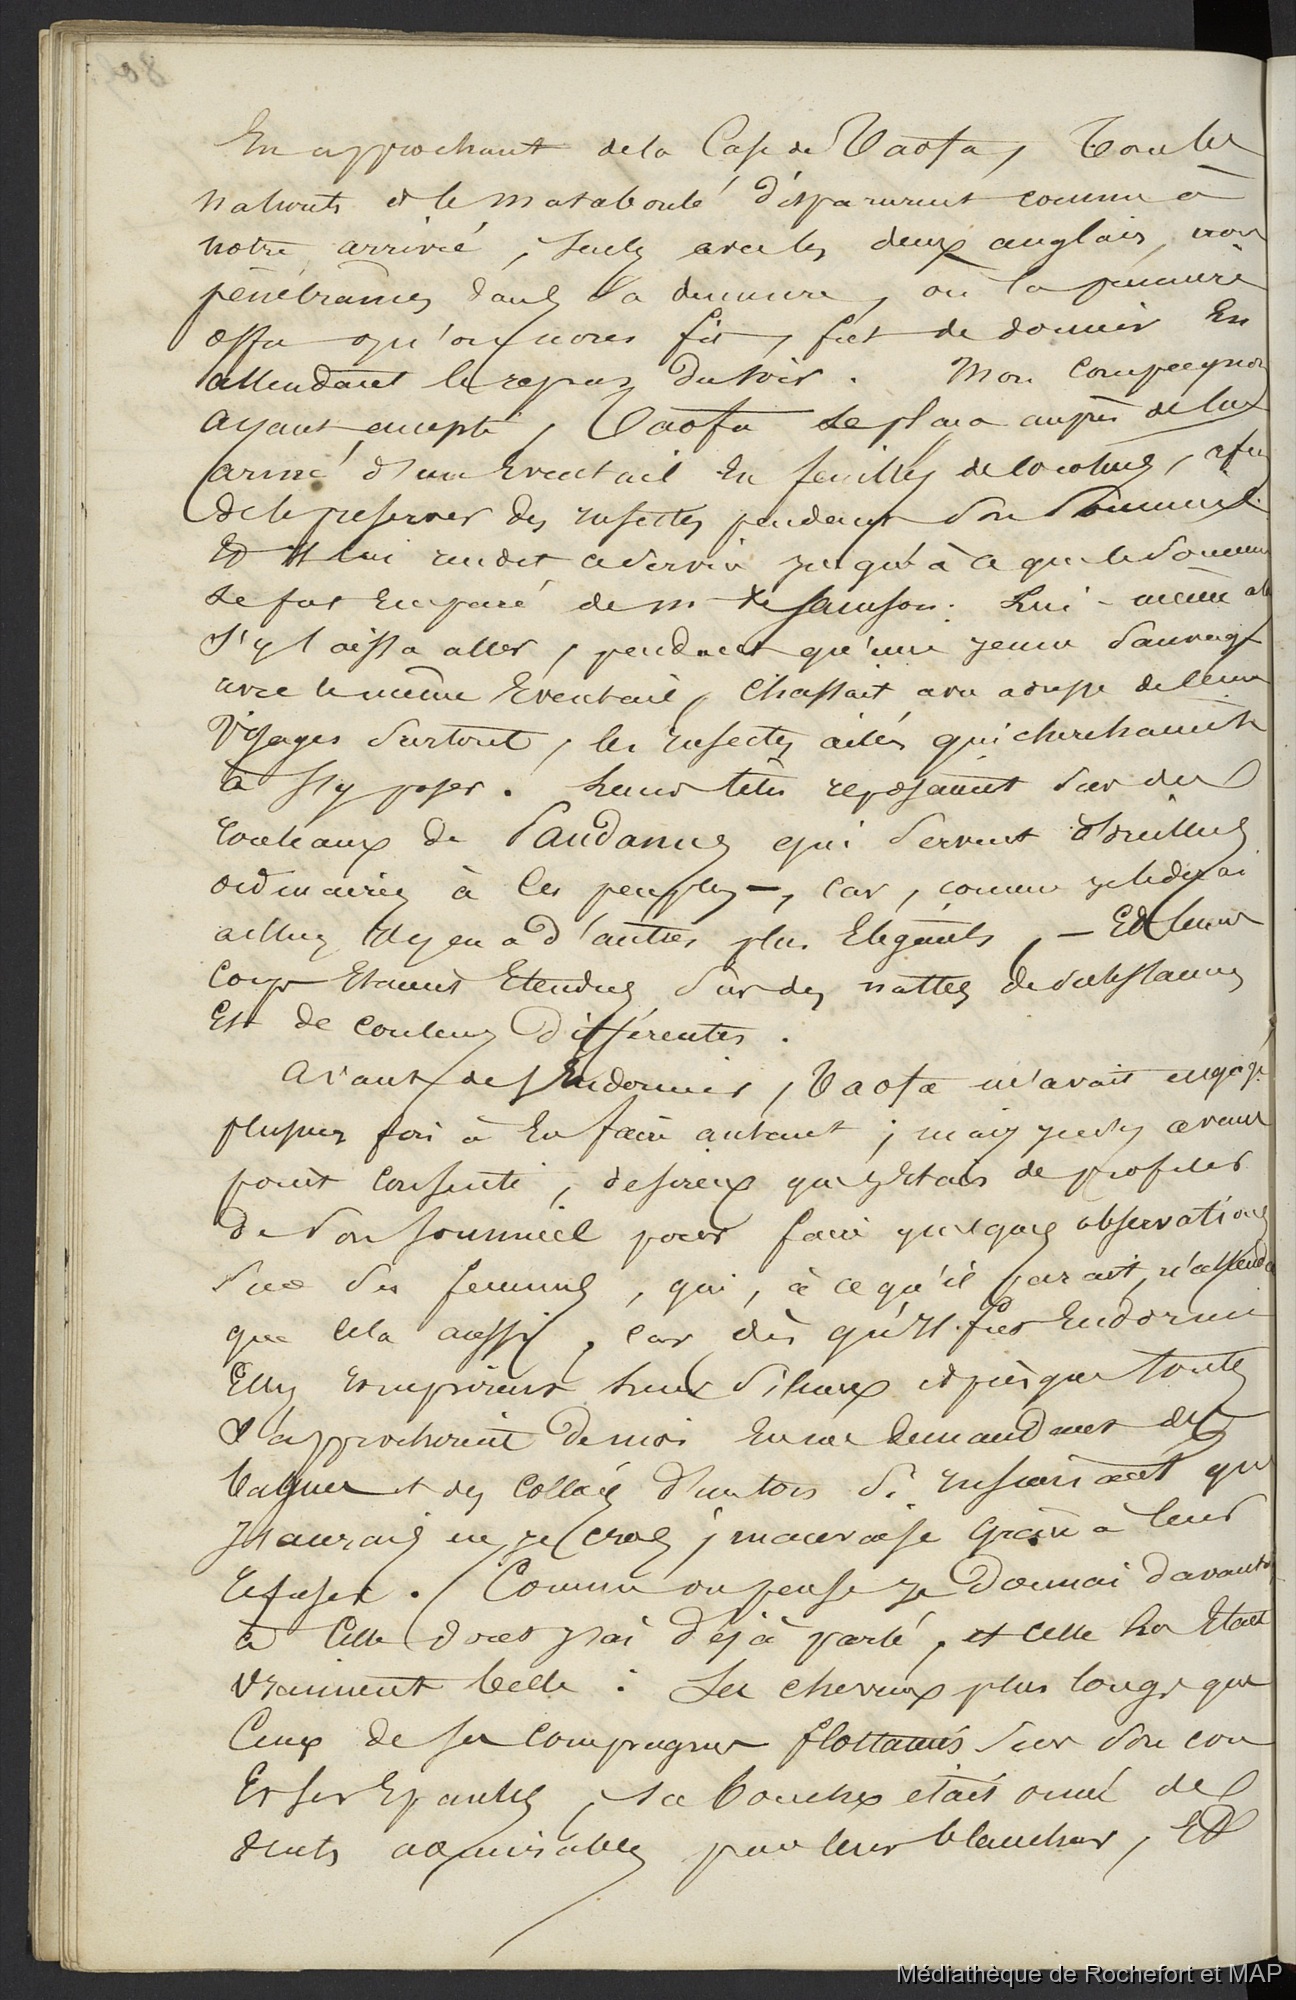 En approchant de la Case de Taofa, tous les
naturels et le mataboulé disparurent comme à
notre arrivée, seuls avec les deux anglais, nous
pénétrâmes dans sa demeure, où la première
offre qu'on nous fit, fut de dormir En
attendant le repas du soir. Mon Compagnon
ayant accepté, Taofa se plaça auprès de lui
armé d'un Eventail en feuilles de cocotier, afin
de le preserver des insectes pendant son sommeil
Et il lui rendit ce service jusqu'à ce que le sommeil
se fut Emparé de mr de Samson. Lui-même
s'y laissa aller, pendant qu'une jeune sauvage
avec le même Eventail, chassait avec adresse de leurs
visages surtout, les insectes ailés qui cherchaient
à s'y poser. Leurs têtes reposaient sur des
rouleaux de Pandanus qui servent d'oreillers
ordinaires à ces peuples —, car, comme je le dirai
ailleurs, il y en a d'autres plus Elegants, — Et leurs
corps Etaient Etendus sur des nattes de substances
Et de couleurs différentes.
Avant de s'Endormir, Taofa m'avait engagé
plusieurs fois à En faire autant ; mais je n'y avais
point consenti, desireux que j'Etais de profiter
de son sommeil pour faire quelques observations
sur ses femmes, qui, à ce qu'il parait, n'attendaient
que cela aussi, car dès qu'il fut Endormi
Elles rompirent leur silence et presque toutes
s'approchèrent de moi En me demandant des
bagues et des colliers d'un ton si insinuant que
j'aurais eu je crois, mauvaise grâce à leur
refuser. Comme on pense je donnai davantage
à Celle dont j'ai déjà parlé, et celle là Etait
vraiment belle : Ses cheveux plus longs que
Ceux de ses compagnes flottaient sur son cou
Et ses Epaules, sa bouche était ornée de
dents admirables par leur blancheur, Et
Médiathèque de Rochefort et MAP